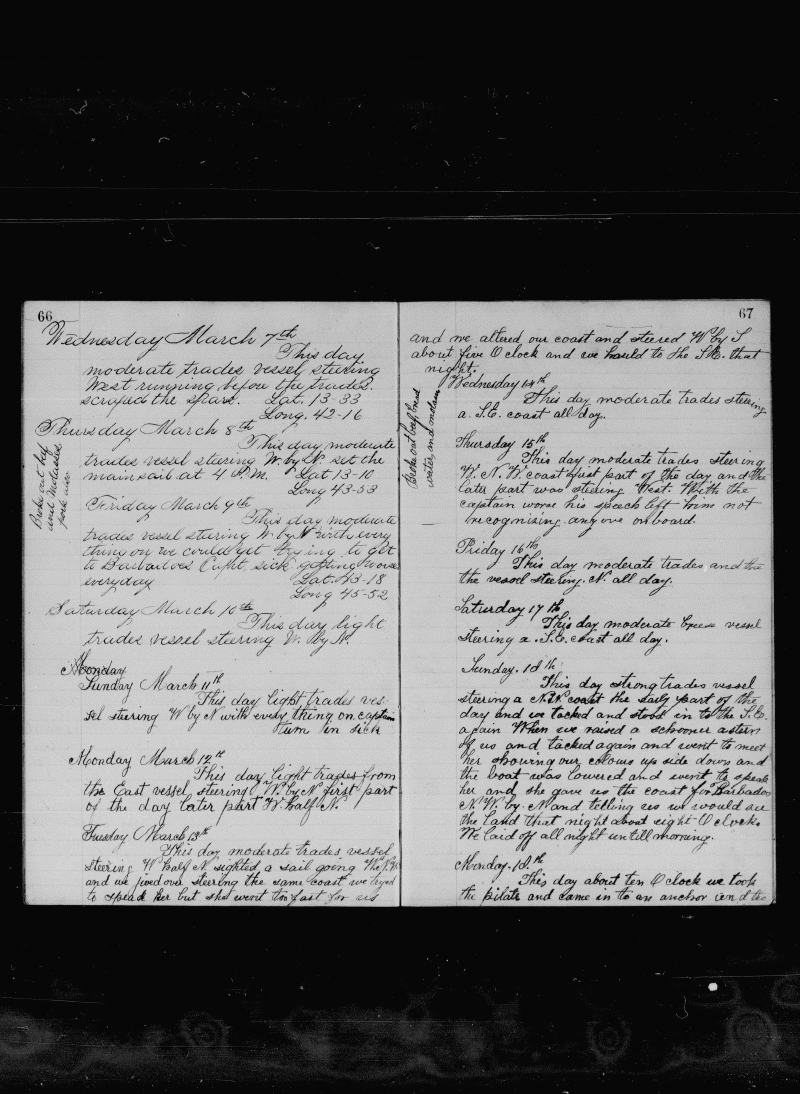 66
Wednesday March 7th
This day
moderate trades vessel steering
West running before the trades.
scraped the spars. Lat. 13-33
Long. 42-16
Thursday March 8th
This day moderate
trades vessel steering W. by N. set the
mainsail at 4 P.M. Lat 13-10
Long 43-53
Broke out beef
and molasses
pork
Friday March 9th
This day moderate
trades vessel steering W. by N with every
thing on we could get trying to get
to Barbadoes Capt. sick getting worse
everyday Lat. 13-18
Long 45-52
Saturday March 10th
This day light
trades vessel steering W. by N.
Monday
Sunday March 11th
This day light trades ves-
sel steering W by N with every thing on captain
turn in sick
Monday March 12th
This day light trades from
the East vessel steering W. by N. first part
of the day later part W. half N.
Tuesday March 13th
This day moderate trades vessel
steering W half N sighted a sail going
and we jived over steering the same coast we tryed
to speak her but she went too fast for us
67
and we altered our coast and steered W by S
about five O clock and we hauld to the S.E. that
night.
Broke out beef, bread
water, and molasses
Wednesday 14th
This day moderate trades steering
a. S.E. coast all day.
Thursday 15th
This day moderate trades steering
W. N. W. coast first part of the day and the
later part was steering West. With the
captain worse his speech left him not
recognising anyone onboard.
Friday 16th
This day moderate trades and the
the vessel steering. N. all day.
Saturday 17th
This day moderate breese vessel
steering a. S.E. coast all day.
Sunday. 18th
This day strong trades vessel
steering a N.N. coast the early part of the
day and we tacked and stood in to the S.E.
again When we raised a schooner astern
of us and tacked again and went to meet
her showing our colours up side down and
the boat was lowered and went to speak
her and she gave us the coast for Barbados
N.W. by N and telling us we would see
the land that night about eight O clock.
We laid off all night untill morning.
Monday. 19.th
This day about ten O clock we took
the pilate and came in to an anchor and the